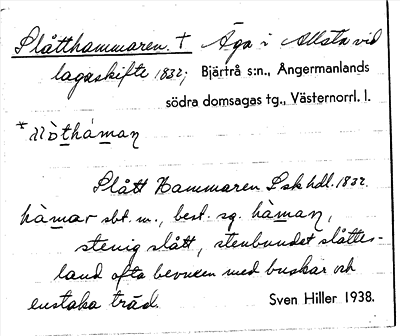 Slåtthammaren. † Äga i Allsta vid
lagaskifte 1832; Bjärtrå s:n., Ångermanlands
södra domsagas tg., Västernorrl. l.
Slått Hammaren Lsk hdl. 1832.
hàmar sbt. m., best. sg. hàmaɳ,
stenig slått, stenbundet slåttes-
land ofta bevuxen med buskar och
enstaka träd. Sven Hiller 1938.